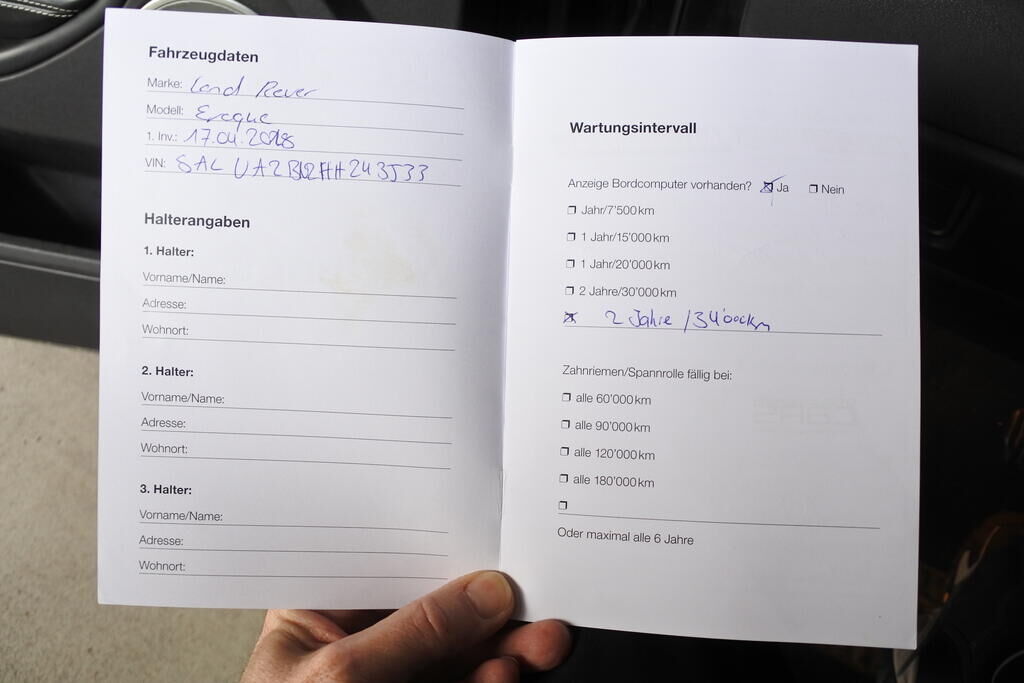 Fahrzeugdaten
Marke: Land Rover
Modell: Evoque
1. Inv.: 17.04.2018
VIN: SAL
Halterangaben
1. Halter:
Vorname/Name:
Adresse:
Wohnort:
2. Halter:
Vorname/Name:
Adresse:
Wohnort:
3. Halter:
Vorname/Name:
Adresse:
Wohnort:
Wartungsintervall
Anzeige Bordcomputer vorhanden? Ja Nein
Jahr/7'500 km
1 Jahr/15'000 km
1 Jahr/20'000 km
2 Jahre/30'000 km
2 Jahre / 34'000km
Zahnriemen/Spannrolle fällig bei:
alle 60'000 km
alle 90'000 km
alle 120'000 km
alle 180'000 km
Oder maximal alle 6 Jahre